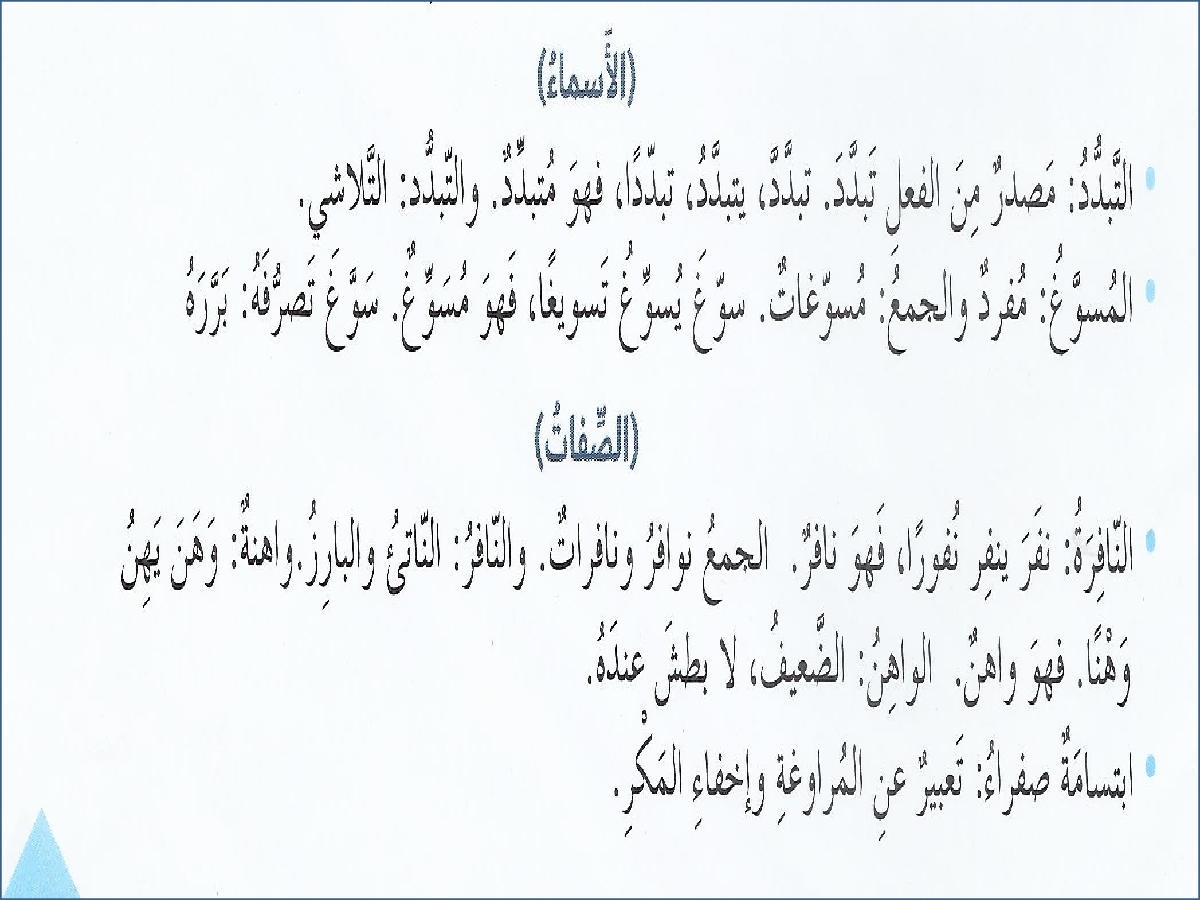 (الأَسماءُ)
• التَّبدُّدُ: مَصدرٌ مِنَ الفعلِ تَبَدَّدَ. تبدَّدَّ، يتبدَّدُ، تبدّدًا، فهوَ مُتبدِّدٌ. والتّبدُّد: التَّلاشي.
• المُسوَّغُ: مُفردٌ والجمعُ: مُسوّغاتٌ. سوّغَ يُسوِّغُ تَسويغًا، فَهوَ مُسَوِّغٌ. سَوَّغَ تَصرُّفَهُ: بَرَّرَهُ
(الصِّفاتُ)
• النّافِرَةُ: نفَرَ ينفِر نُفورًا، فَهوَ نافرٌ. الجمعُ نوافرُ ونافراتٌ. والنّافرُ: النّاتئُ والبارِزُ.واهنةٌ: وَهَنَ يَهِنُ
وَهْنًا. فهوَ واهنٌ. الواهِنُ: الضَّعيفُ، لا بطشَ عندَهُ.
• ابتسامَةٌ صفراءُ: تَعبيرٌ عنِ المُراوغةِ وإخفاءِ المَكْرِ.